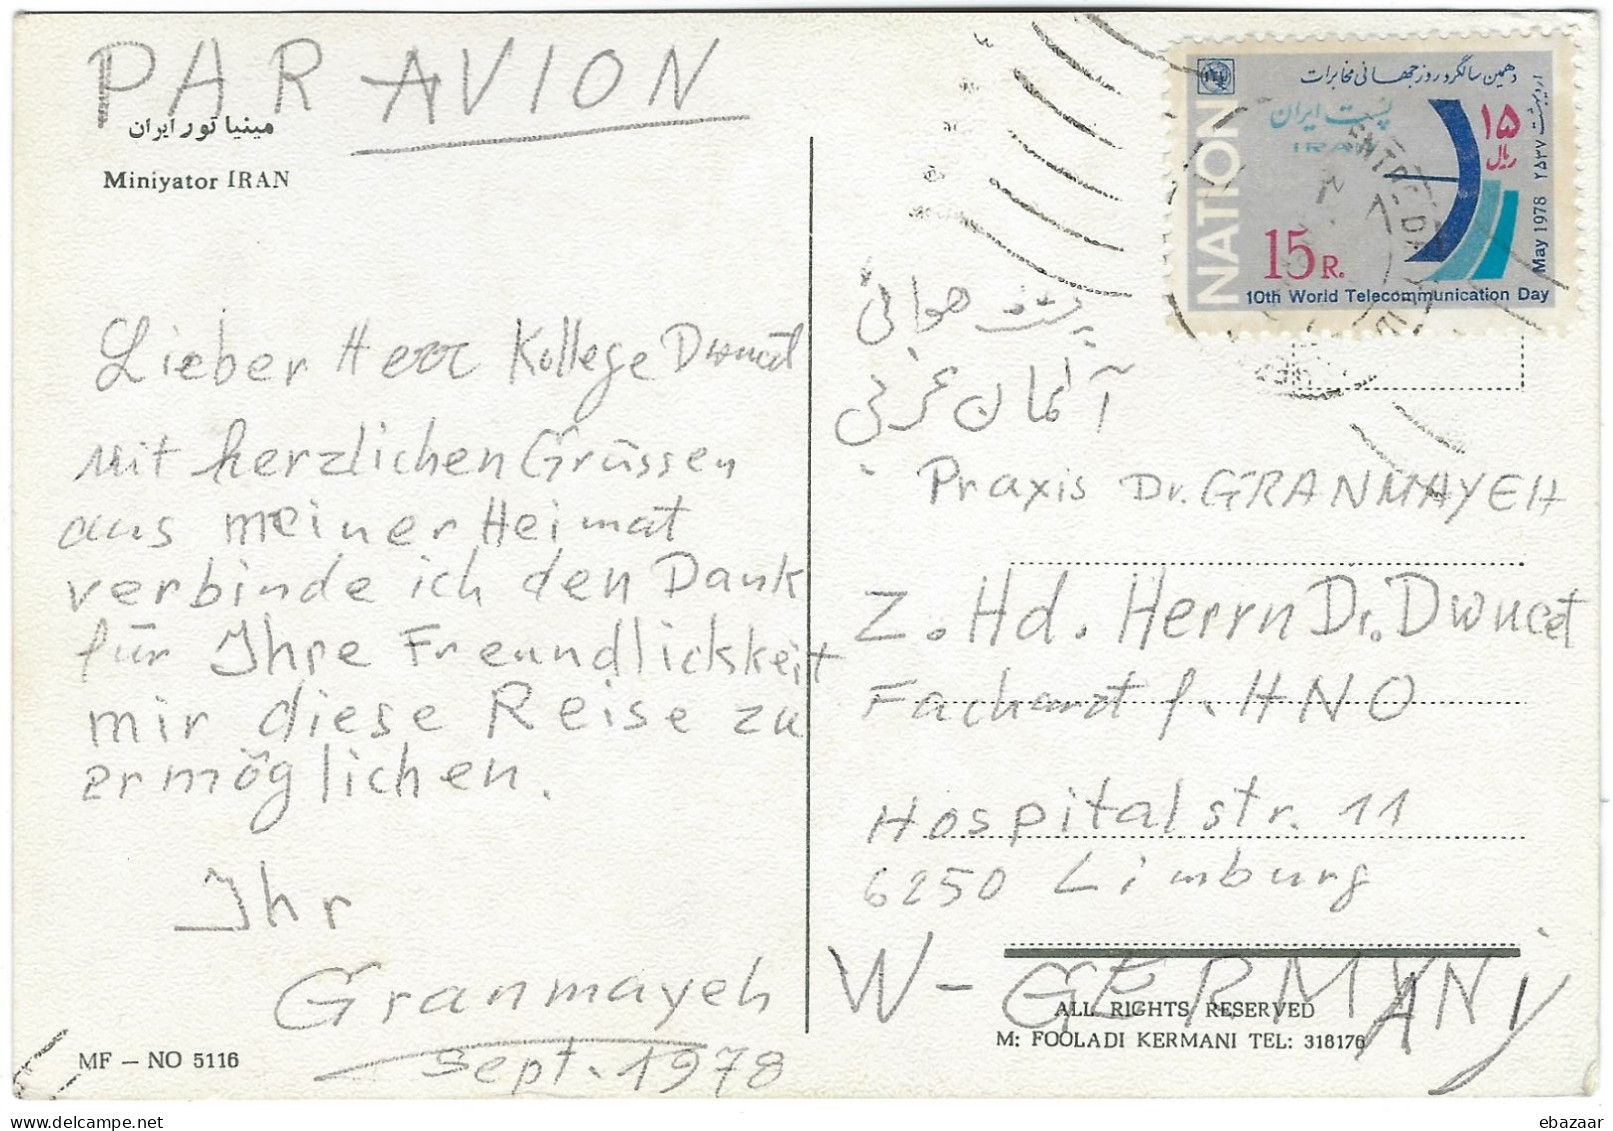 PAR AVION
مینیاتور ایران
Miniyator IRAN
Lieber Herr Kollege
mit herzlichen Grüssen
aus meiner Heimat
verbinde ich den Dank
für Ihre Freundlichkeit
mir diese Reise zu
ermöglichen.
Ihr
Granmayeh
Sept. 1978
MF – NO 5116
دهمین سالگرد روز جهانی مخابرات
پست ایران
IRAN
۱۵
ریال
اردیبهشت ۲۵۳۷
May 1978
NATION
15 R.
10th World Telecommunication Day
پست هوائی
آلمان غربی
Praxis Dr. GRANMAYEH
Z. Hd. Herrn Dr.
Facharzt f. HNO
Hospitalstr. 11
6250 Limburg
W-GERMANY
ALL RIGHTS RESERVED
M: FOOLADI KERMANI TEL: 318176
ebazaar